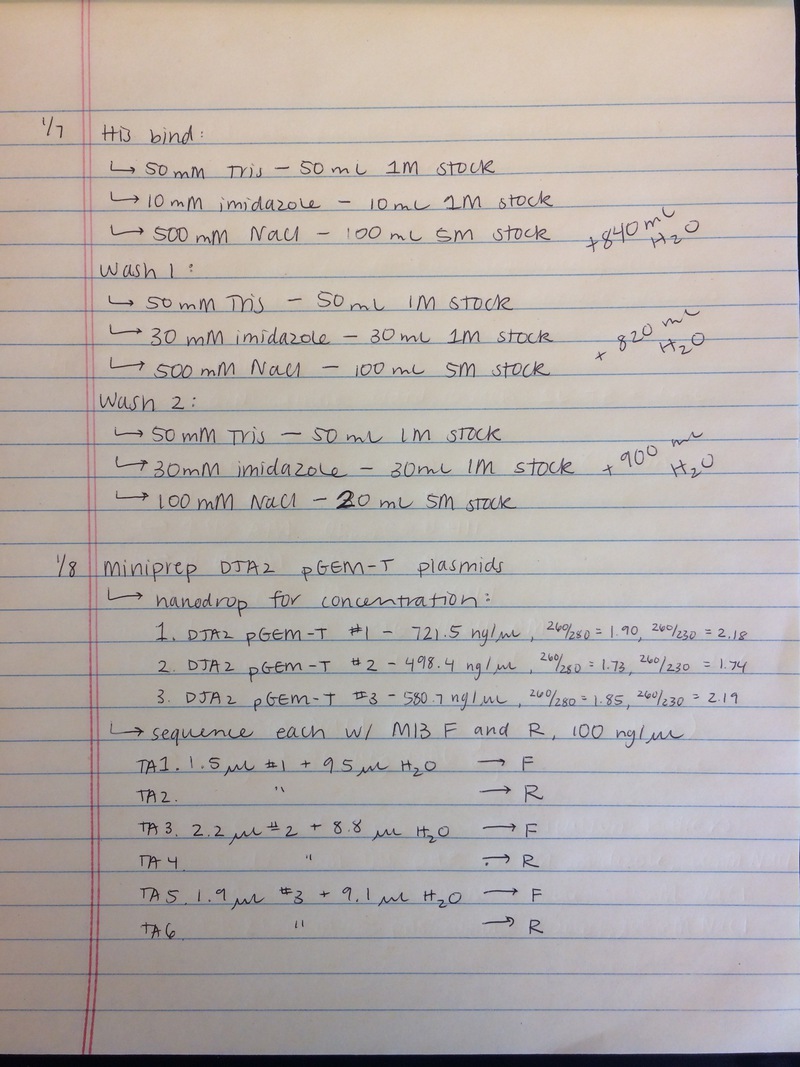 1/7 His bind:
↳ 50 mM Tris - 50 mL 1M stock
↳ 10 mM imidazole - 10 mL 1M stock
↳ 500 mM NaCl - 100 mL 5M stock +840 mL H2O
Wash 1:
↳ 50 mM Tris - 50 mL 1M stock
↳ 30 mM imidazole - 30 mL 1M stock + 820 mL H2O
↳ 500 mM NaCl - 100 mL 5M stock
Wash 2:
↳ 50 mM Tris - 50 mL 1M stock
↳ 30mM imidazole - 30mL 1M stock + 900 mL H2O
↳ 100 mM NaCl - 20 mL 5M stock
1/8 miniprep DJA2 pGEM-T plasmids
↳ nanodrop for concentration:
1. DJA2 pGEM-T #1 - 721.5 ng/µL, 260/280 = 1.90, 260/230 = 2.18
2. DJA2 pGEM-T #2 - 498.4 ng/µL, 260/280 = 1.73, 260/230 = 1.74
3. DJA2 pGEM-T #3 - 580.7 ng/µL, 260/280 = 1.85, 260/230 = 2.19
↳ sequence each w/ M13 F and R, 100 ng/µL
TA1. 1.5 µL #1 + 9.5 µL H2O → F
TA2. " → R
TA3. 2.2 µL #2 + 8.8 µL H2O → F
TA4 " → R
TA5. 1.9 µL #3 + 9.1 µL H2O → F
TA6 " → R